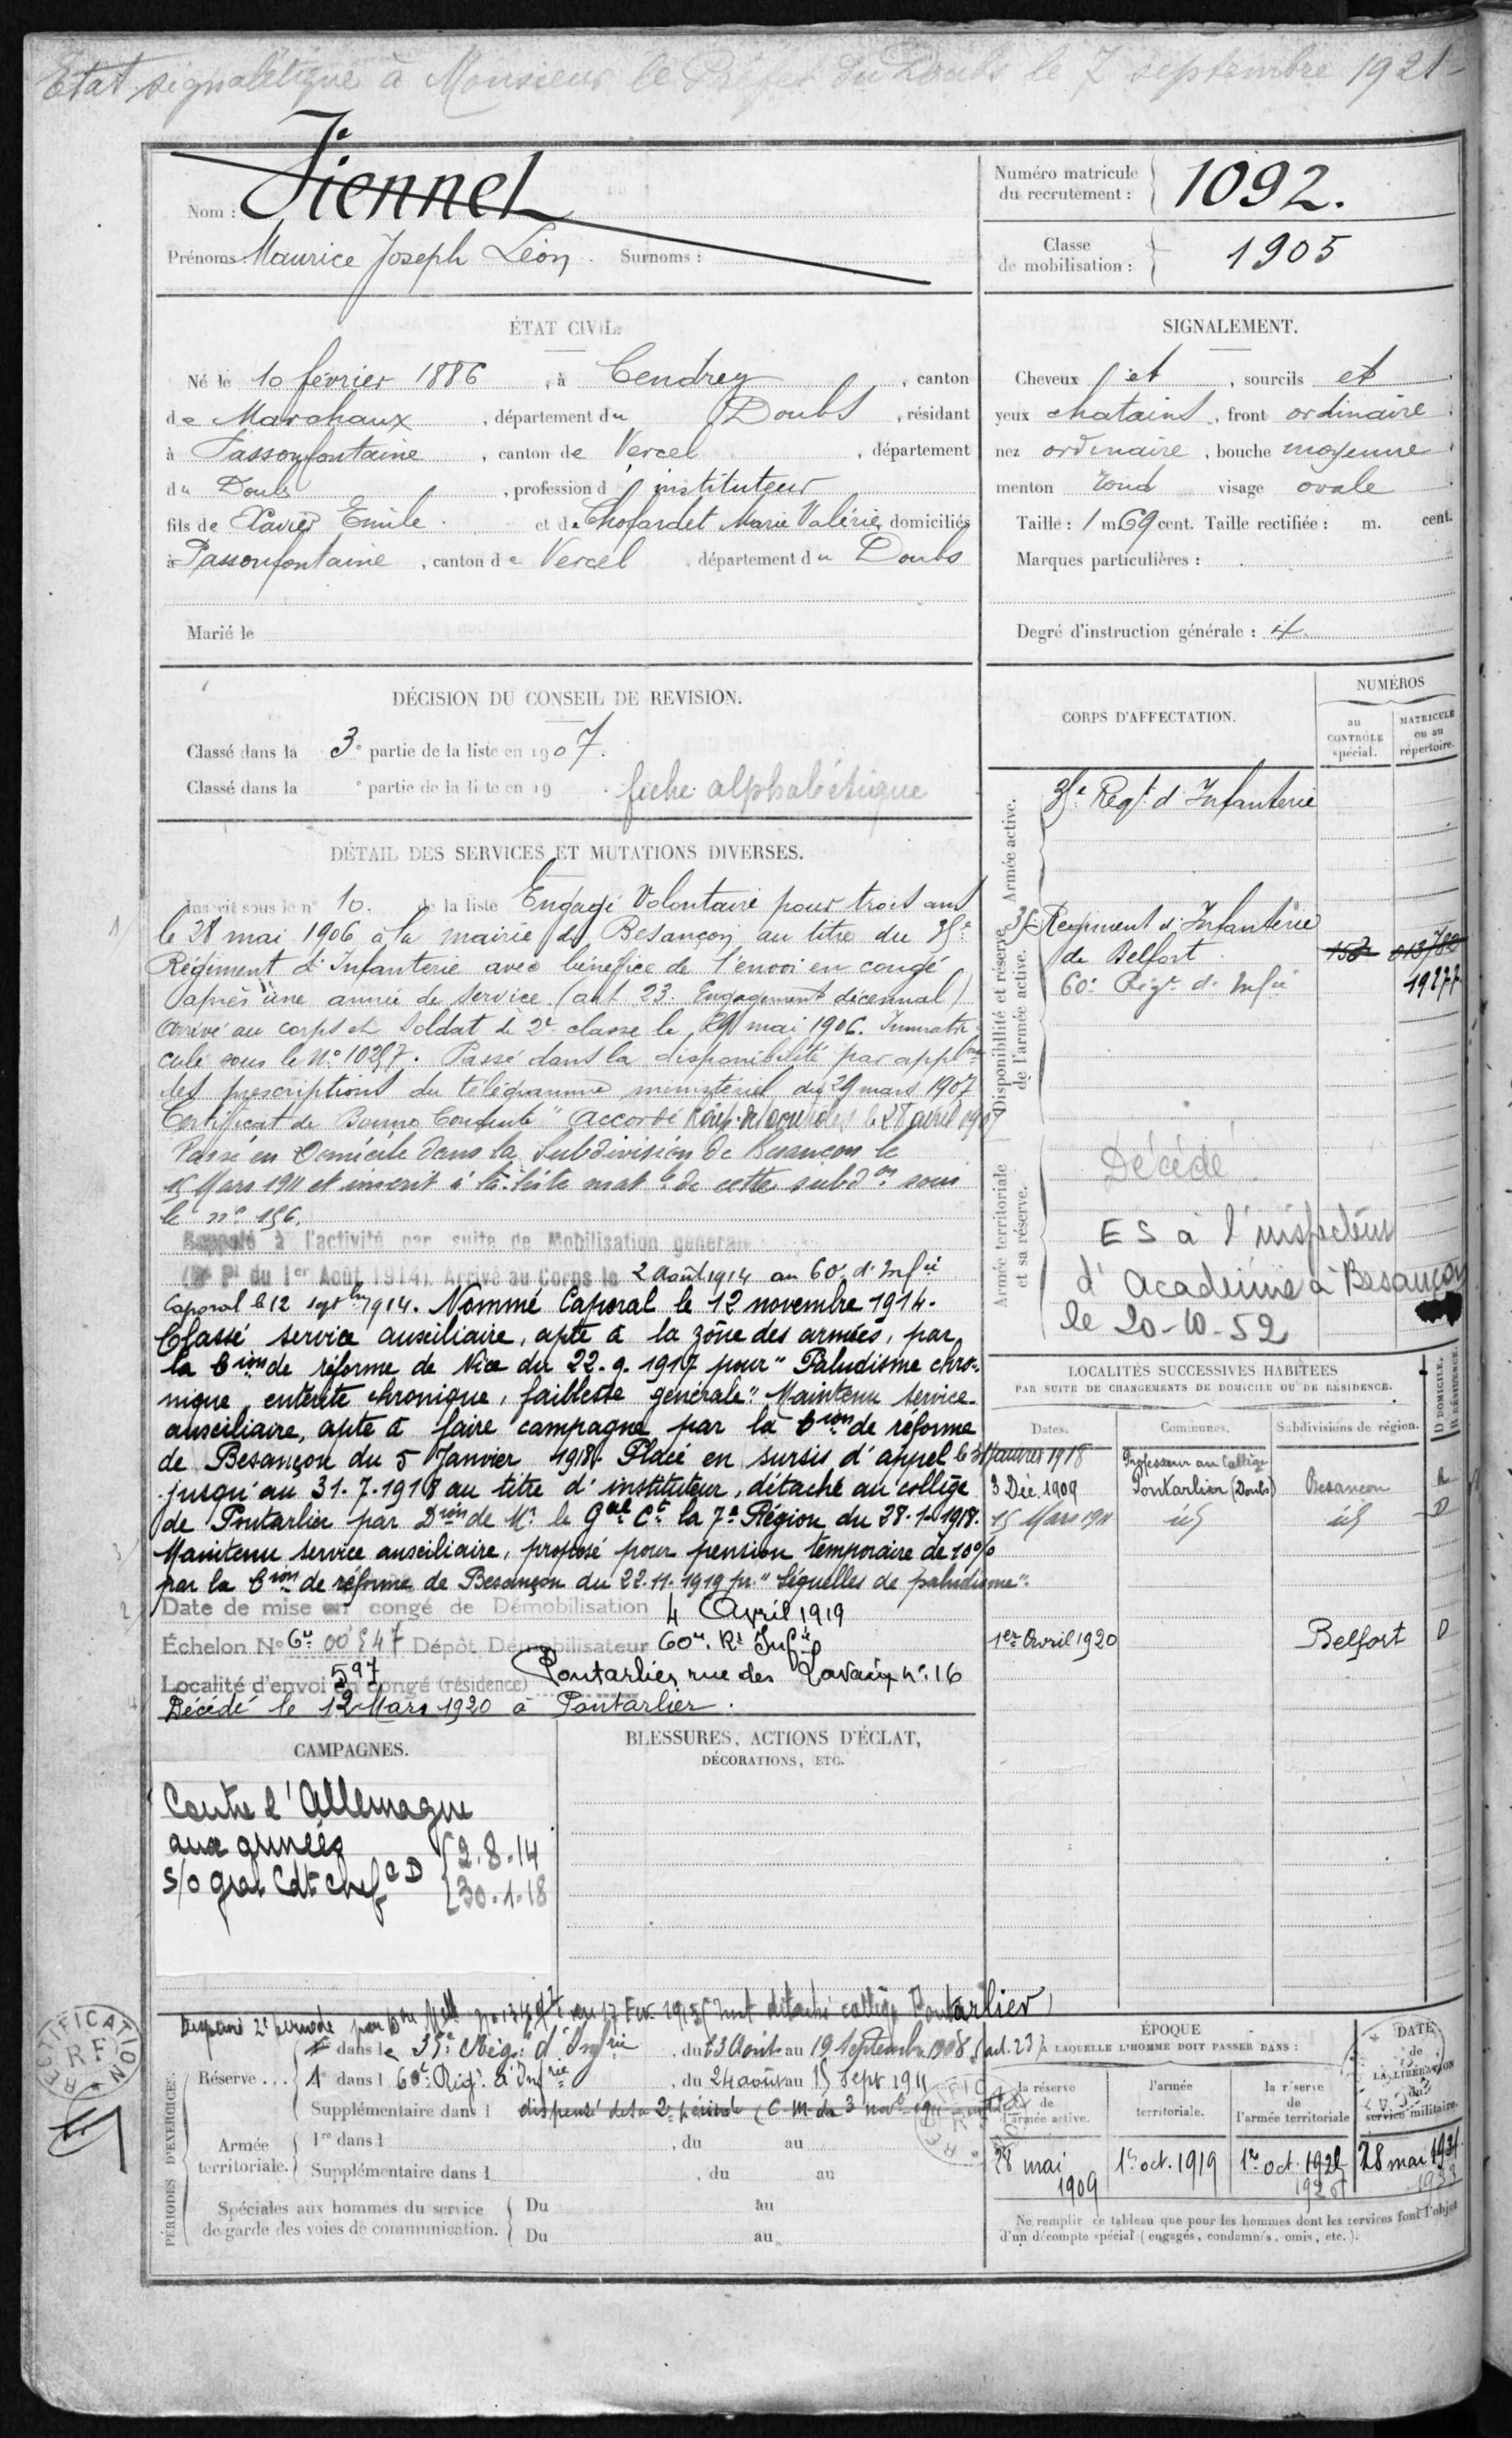 Etat signalétique à Monsieur le Préfet du Doubs le 7 septembre 1921
Nom : Viennet
Prénoms : Maurice Joseph Léon. Surnoms :
Numéro matricule du recrutement : 1092.
Classe de mobilisation : 1905
ÉTAT CIVIL.
Né le 10 février 1886, à Cendrey, canton
de Marchaux, département du Doubs, résidant
à Passonfontaine, canton de Vercel, département
du Doubs, profession d'instituteur
fils de Xavier Emile et de Chofardet Marie Valérie, domiciliés
à Passonfontaine, canton de Vercel, département du Doubs
Marié le
SIGNALEMENT.
Cheveux et, sourcils et
yeux chatains, front ordinaire
nez ordinaire, bouche moyenne
menton rond visage ovale
Taille : 1 m 69 cent. Taille rectifiée : m. cent.
Marques particulières :
Degré d'instruction générale : 4
DÉCISION DU CONSEIL DE REVISION.
Classé dans la 3e partie de la liste en 1907.
Classé dans la e partie de la liste en 19 . fiche alphabétique
DÉTAIL DES SERVICES ET MUTATIONS DIVERSES.
Inscrit sous le n° 10. de la liste Engagé Volontaire pour trois ans
le 28 mai 1906 à la mairie de Besançon au titre du 35e
Régiment d'Infanterie avec bénéfice de l'envoi en congé
après une année de service (art 23. Engagement décennal)
Arrivé au corps et soldat de 2e classe le 29 mai 1906. Immatri
culé sous le N° 10257. Passé dans la disponibilité par applon
des prescriptions du télégramme ministériel du 29 mars 1907
Certificat de "Bonne Conduite" accordé le 28 avril 1907
Passé en Domicile dans la Subdivision de Besançon le
15 Mars 1911 et inscrit à la liste matle de cette subdon sous
le n° 156.
Rappelé à l'activité par suite de Mobilisation générale
(Dt Pl du 1er Août 1914). Arrivé au Corps le 2 Août 1914 au 60e d'Infie
Caporal le 12 septbre 1914. Nommé Caporal le 12 novembre 1914.
Classé service auxiliaire, apte à la zône des armées, par
la Cion de réforme de Nice du 22.9.1917 pour "Paludisme chro-
nique, entérite chronique, faiblesse générale". Maintenu service
auxiliaire, apte à faire campagne par la Cion de réforme
de Besançon du 5 Janvier 1918. Placé en sursis d'appel le 31 janvier 1918
jusqu'au 31.7.1918 au titre d'instituteur, détaché au collège
de Pontarlier par Dion de Mr le Gal Ct la 7e Région du 28.1.1918.
Maintenu service auxiliaire, proposé pour pension temporaire de 10%
par la Cion de réforme de Besançon du 22.11.1919 pr. "Séquelles de paludisme".
Date de mise en congé de Démobilisation 4 Avril 1919
Échelon N° Dépôt Démobilisateur 60e Rt Infie
Localité d'envoi en congé (résidence) Pontarlier, rue des Lavaux n° 16
597
Décédé le 12 Mars 1920 à Pontarlier.
CORPS D'AFFECTATION.
NUMÉROS
au CONTRÔLE spécial.
MATRICULE ou au répertoire.
Armée active.
35e Régt d'Infanterie
Disponibilité et réserve de l'armée active.
35e Régiment d'Infanterie
de Belfort
60e Régt d'Infie 19277
Armée territoriale et sa réserve.
Décédé
ES à l'inspecteur
d'Académie à Besançon
le 20-10-52
LOCALITÉS SUCCESSIVES HABITÉES
PAR SUITE DE CHANGEMENTS DE DOMICILE OU DE RÉSIDENCE.
Dates. Communes. Subdivisions de région. D DOMICILE. R RÉSIDENCE.
Professeur au Collège
3 Déc. 1909 Pontarlier (Doubs) Besançon R
15 Mars 1911 id id D
1er Avril 1920 Belfort D
CAMPAGNES.
Contre l'Allemagne
aux armées 2.8.14
s/o gral Cdt chef CD 30.1.18
BLESSURES, ACTIONS D'ÉCLAT,
DÉCORATIONS, ETC.
PÉRIODES D'EXERCICES.
Réserve ... 1e dans le 35e Rég. d'Infrie, du 23 Août au 19 Septembre 1908
1e dans l 60e Rég. d'Infrie, du 24 août au 15 Sept 1911
Supplémentaire dans l dispensé de sa 2e période (C.M. du 3 nov 1911
Armée territoriale. 1re dans l , du au
Supplémentaire dans l , du au
Spéciales aux hommes du service de garde des voies de communication. Du au
Du au
ÉPOQUE
À LAQUELLE L'HOMME DOIT PASSER DANS :
la réserve de l'armée active.
l'armée territoriale.
la réserve de l'armée territoriale
DATE de LA LIBÉRATION du service militaire.
28 mai 1909 1er oct. 1919 1er oct. 1925 28 mai 1931
1933
Ne remplir ce tableau que pour les hommes dont les services font l'objet
d'un décompte spécial (engagés, condamnés, omis, etc.).
RECTIFICATION
R F